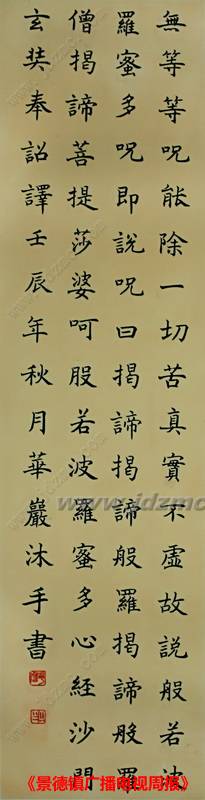 無等等呪能除一切苦真實不虛故説般若波
羅蜜多呪即説呪曰揭諦揭諦般羅揭諦般羅
僧揭諦菩提莎婆呵般若波羅蜜多心經沙門
玄奘奉詔譯壬辰年秋月華巖沐手書
www.jdzmc
《景德镇广播电视周报》